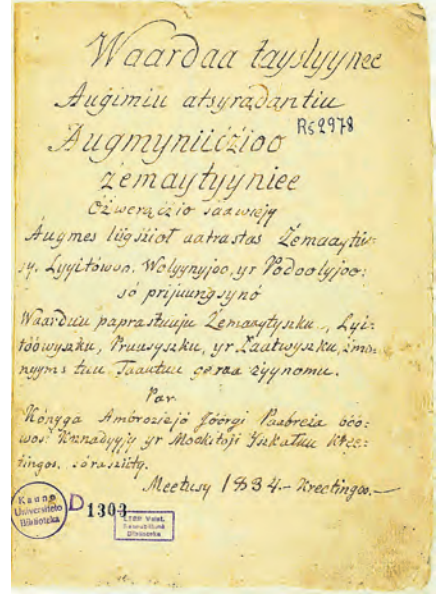 Waardaa łayslyynee
Augimiu atsyradantiu
Rs2978
Augmyniićzioo
żemaytyyniee
Ożwerąćzio saawięjy
Augmes lıgszioł aatrastas Żemaaytiu-
sy, Lyyitówoo, Wolyynyjoo, yr Podoolyjoo:
só prijuungsynó
Waarduu paprastuuju Żemaaytyszku, Lyi-
toówyszku, Pruusyszku, yr Łaatwyszku, żmo-
nyyms tuu Taautuu geraa żyynomu.
Par
Kónyga Ambroziejó Jóórgi Paabreża
Kunadyyjy yr Mookitoji Iszkałuu
tingos, soraszięty.
Meetusy 1834.- Krectingoo.-
Kauno
Universiteto
Biblioteka
D
1303
LTSR Valst.
Respublikinė
Biblioteka